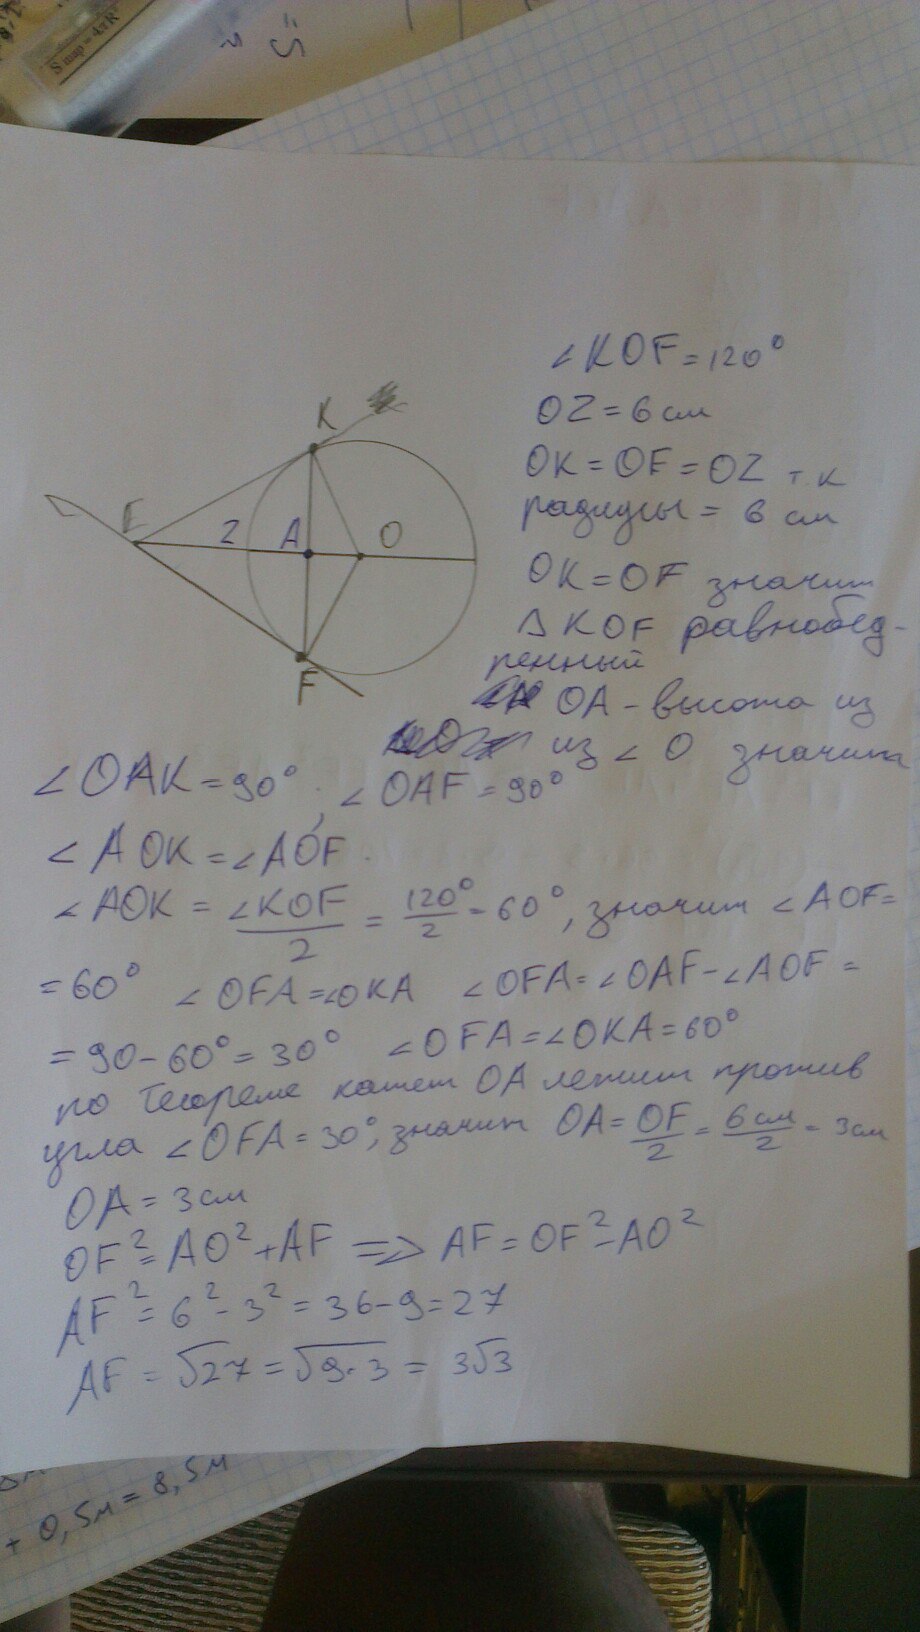 S шар = 4πR²
∠KOF = 120°
OZ = 6 см
OK = OF = OZ т.к
радиусы = 6 см
K
E Z A O
F
OK = OF значит
Δ KOF равнобед-
ренный
OA - высота из
из ∠ O значит
∠OAK = 90°; ∠OAF = 90°
∠AOK = ∠AOF.
∠AOK = ∠KOF/2 = 120°/2 = 60°, значит ∠AOF =
= 60° ∠OFA = ∠OKA ∠OFA = ∠OAF - ∠AOF =
= 90 - 60° = 30° ∠OFA = ∠OKA = 60°
по Теореме катет OA лежит против
угла ∠OFA = 30°, значит OA = OF/2 = 6 см/2 = 3 см
OA = 3 см
OF² = AO² + AF => AF = OF² - AO²
AF² = 6² - 3² = 36 - 9 = 27
AF = √27 = √9·3 = 3√3
+ 0,5м = 8,5м